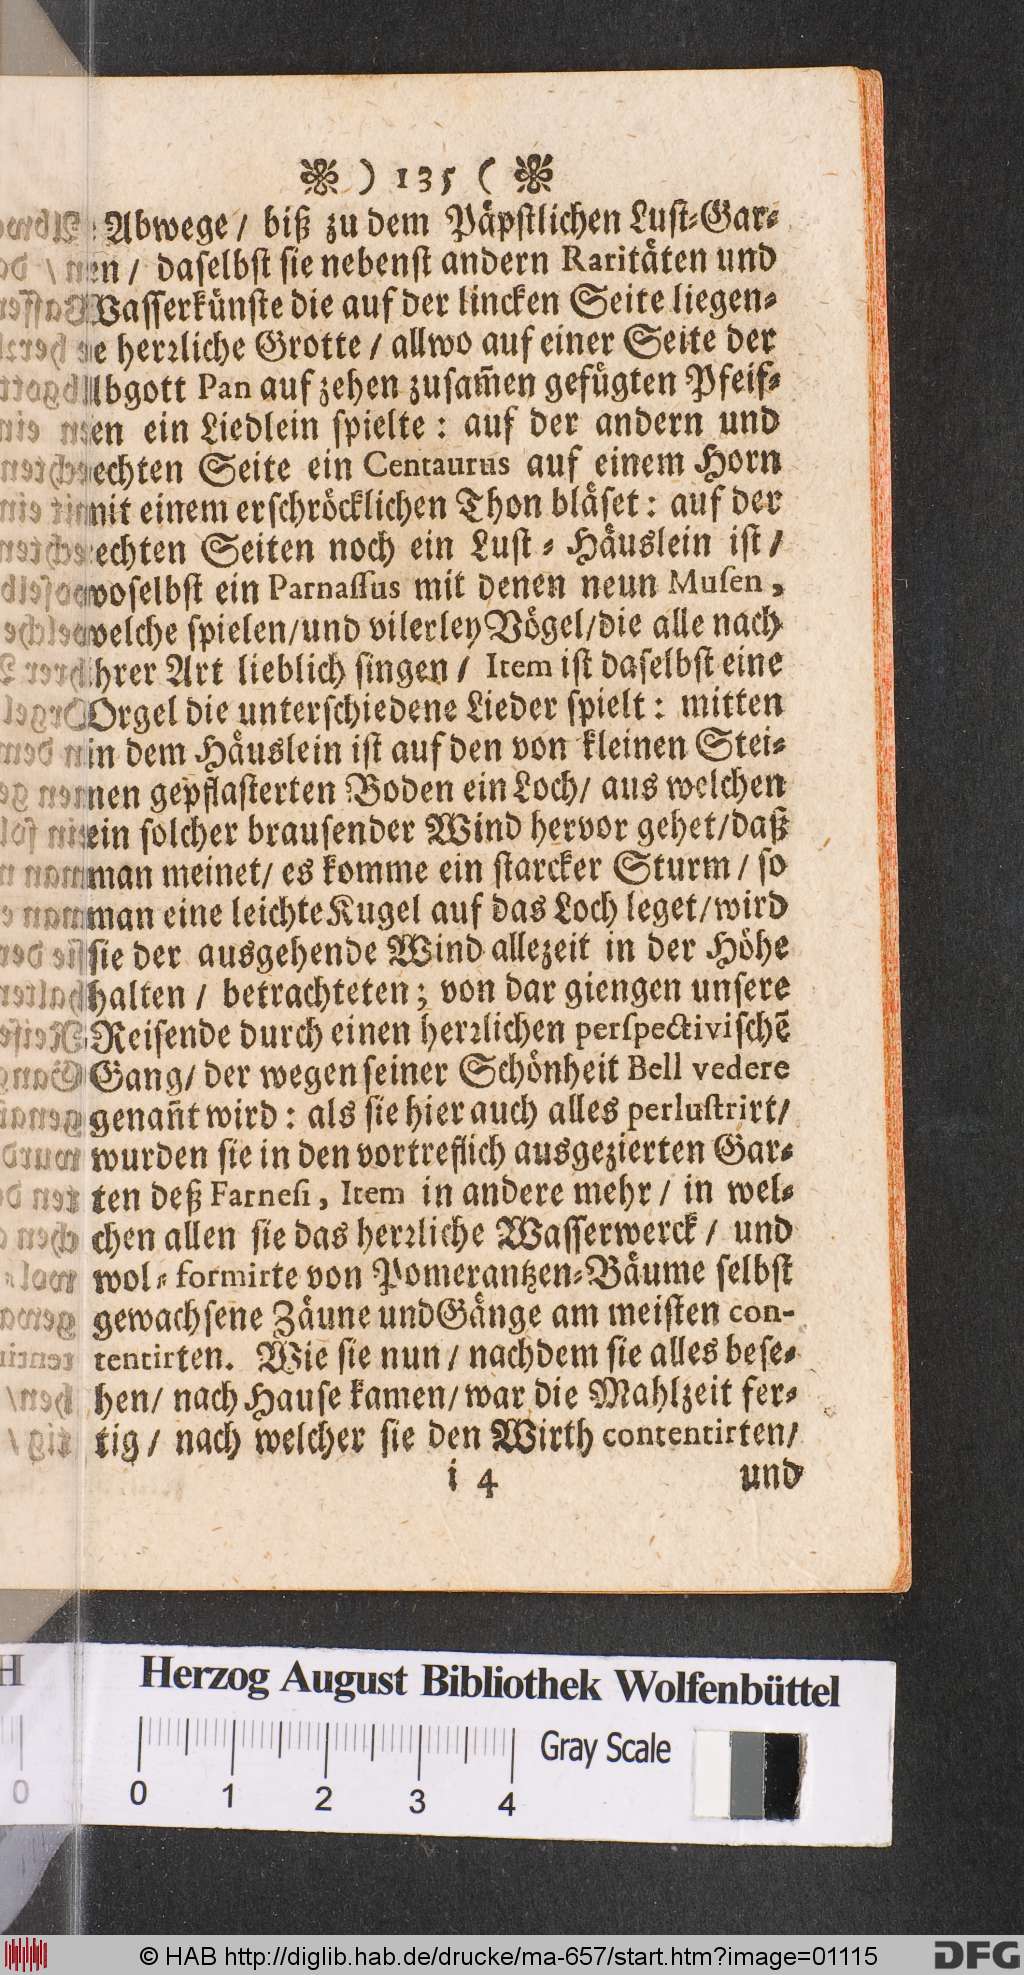 ) 135 (
Abwege / biß zu dem Päpstlichen Lust-Gar-
en / daselbst sie nebenst andern Raritäten und
Wasserkünste die auf der lincken Seite liegen-
e herꝛliche Grotte / allwo auf einer Seite der
lbgott Pan auf zehen zusam̃en gefügten Pfeif-
en ein Liedlein spielte : auf der andern und
echten Seite ein Centaurus auf einem Horn
mit einem erschröcklichen Thon bläset : auf der
echten Seiten noch ein Lust-Häuslein ist /
woselbst ein Parnaſſus mit denen neun Muſen,
welche spielen/und vilerley Vögel/die alle nach
hrer Art lieblich singen / Item ist daselbst eine
Orgel die unterschiedene Lieder spielt : mitten
in dem Häuslein ist auf den von kleinen Stei-
nen gepflasterten Boden ein Loch/ aus welchen
ein solcher brausender Wind hervor gehet/daß
man meinet/ es komme ein starcker Sturm / so
man eine leichte Kugel auf das Loch leget/wird
sie der ausgehende Wind allezeit in der Höhe
halten / betrachteten ; von dar giengen unsere
Reisende durch einen herꝛlichen perſpectivischẽ
Gang/ der wegen seiner Schönheit Bell vedere
genañt wird : als sie hier auch alles perluſtrirt/
wurden sie in den vortreflich ausgezierten Gar-
ten deß Farneſi, Item in andere mehr / in wel-
chen allen sie das herꝛliche Wasserwerck / und
wol-formirte von Pomerantzen-Bäume selbst
gewachsene Zäune und Gänge am meisten con-
tentirten. Wie sie nun / nachdem sie alles bese-
hen/ nach Hause kamen/ war die Mahlzeit fer-
tig / nach welcher sie den Wirth contentirten/
i 4 und
Herzog August Bibliothek Wolfenbüttel
Gray Scale
0 1 2 3 4
0
© HAB http://diglib.hab.de/drucke/ma-657/start.htm?image=01115
DFG